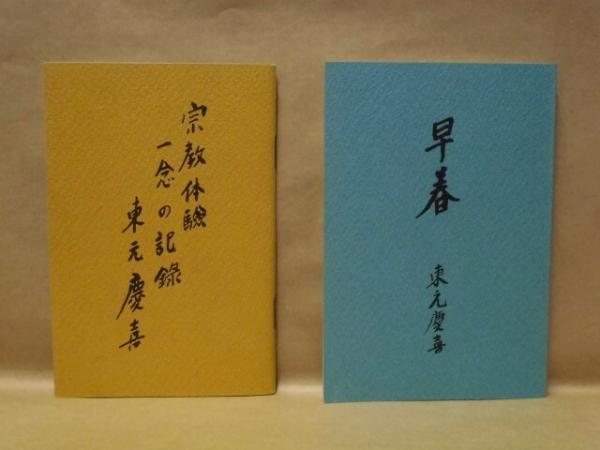 宗教体験
一念の記録
東元慶喜
早春
東元慶喜